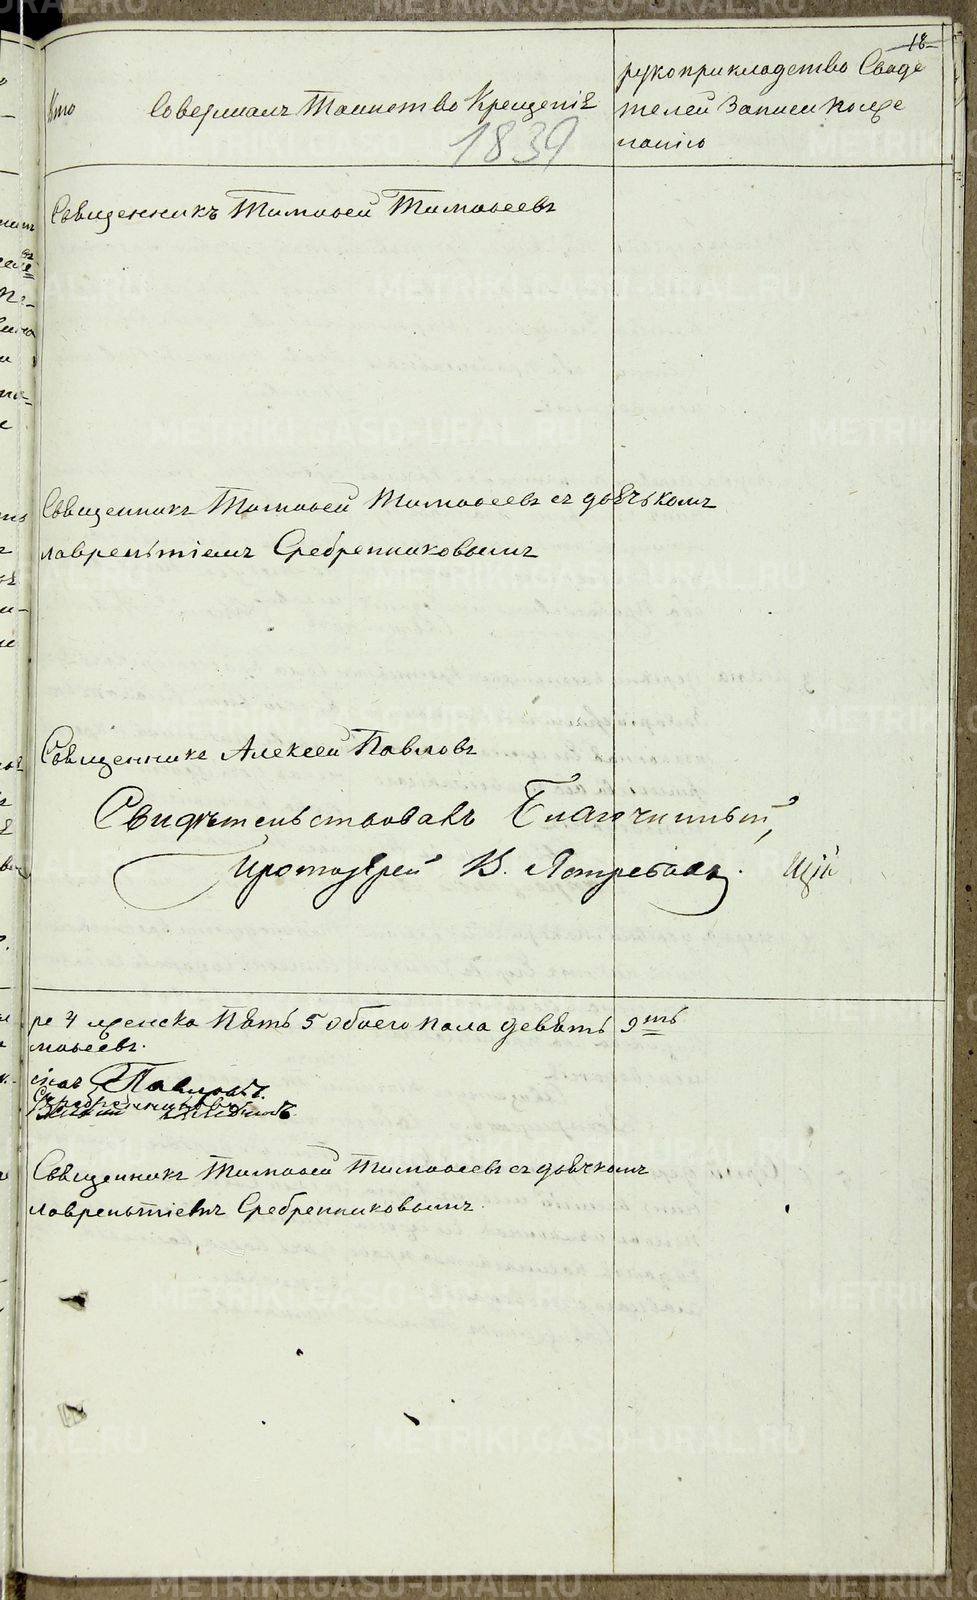 18
Кто Совершалъ Таинство Крещенiя
рукоприкладство Свиде
телей Записи по же
ланiю
1839
Священникъ Тимофей Тимофеевъ
Священникъ Тимофей Тимофеевъ съ дьячкомъ
Лаврентiемъ Сребренниковымъ
Священникъ Алексей Павловъ
Свидѣтельствовалъ Благочинный,
Протоiерей В. Ястребовъ.
ре 4 женска пять 5 обоего пола девять 9ть
мофеевъ.
Павловъ.
Священникъ Тимофей Тимофеевъ съ дьячкомъ
Лаврентiемъ Сребренниковымъ.
METRIKI.GASO-URAL.RU